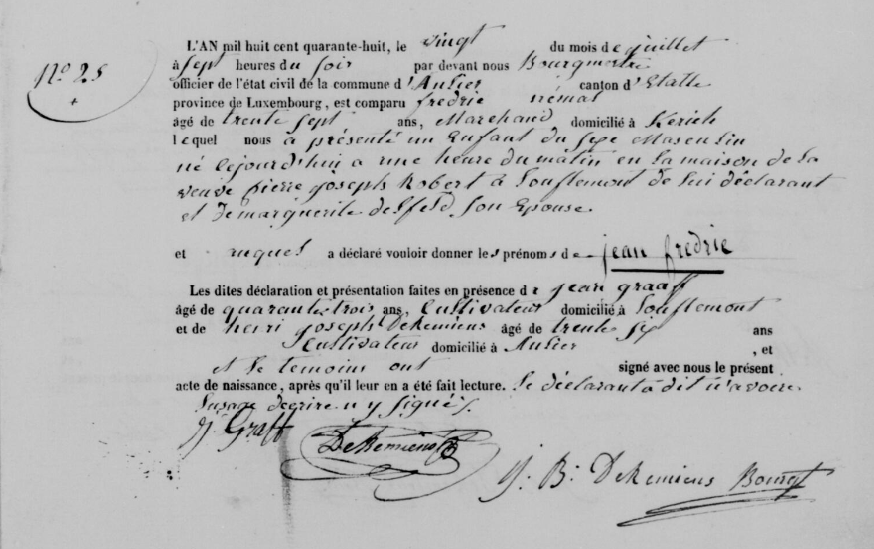 N° 25
L'AN mil huit cent quarante-huit, le vingt du mois de juillet
à Sept heures du Soir par devant nous Bourgmestre
officier de l'état civil de la commune d'Anlier canton d'Etalle
province de Luxembourg, est comparu fredric némat
âgé de trente Sept ans, Marchand domicilié à
lequel nous à présenté un Enfant du Sexe Masculin
né cejourd'hui a une heure du matin en la maison de la
veuve pierre joseph Robert à Louftemont de Lui déclarant
et De marguerite Son Epouse.
et auquel a déclaré vouloir donner les prénoms de jean fredric
Les dites déclaration et présentation faites en présence de jean graaff
âgé de quarante trois ans, Cultivateur domicilié à Louftemont
et de henri joseph DeKemiens âgé de trente Six ans
Cultivateur domicilié à Anlier, et
et Le temoins ont signé avec nous le présent
acte de naissance, après qu'il leur en a été fait lecture. Le déclarant a dit n'avoire
Lusage decrire n y Signés.
J Graff
DeKemiens
J: B: DeKemiens Bourgt